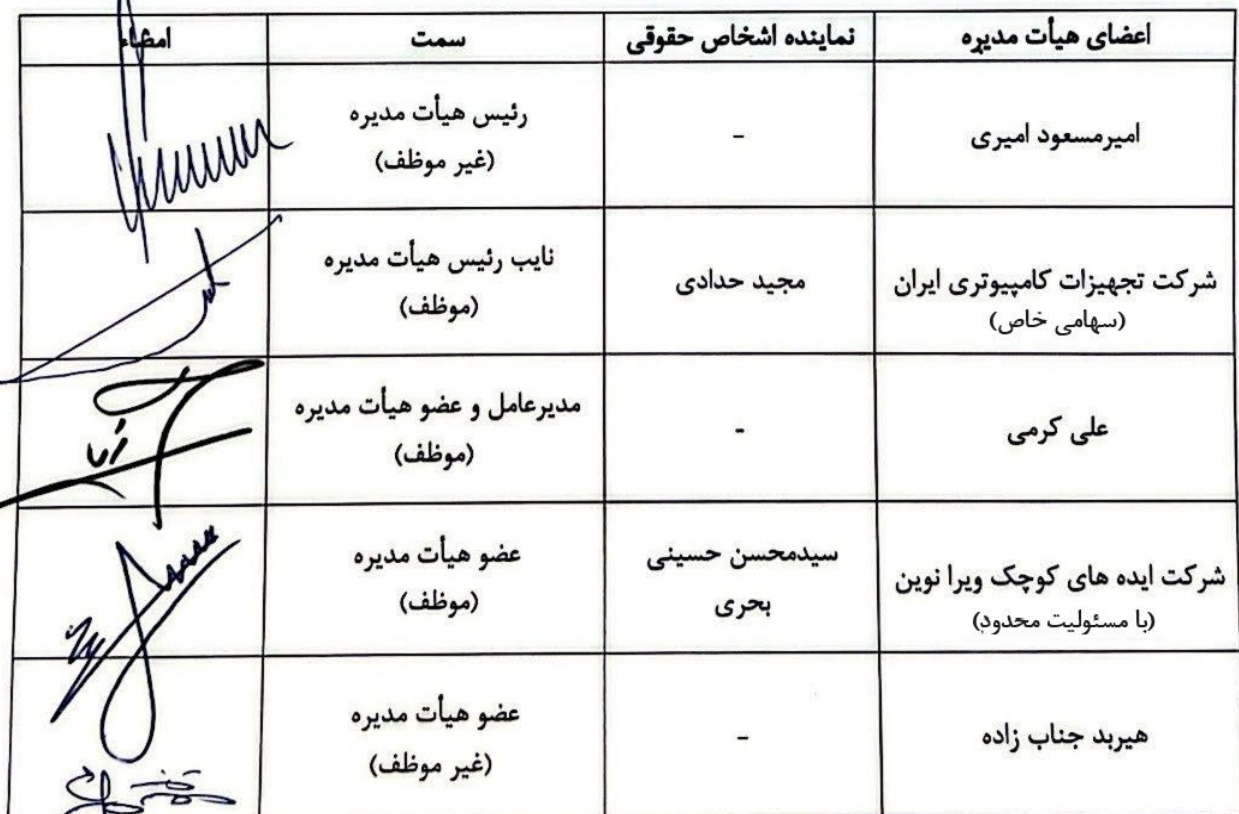 اعضای هیأت مدیره نماینده اشخاص حقوقی سمت امضاء
امیرمسعود امیری - رئیس هیأت مدیره
(غیر موظف)
شرکت تجهیزات کامپیوتری ایران مجید حدادی نایب رئیس هیأت مدیره
(سهامی خاص) (موظف)
علی کرمی - مدیرعامل و عضو هیأت مدیره
(موظف)
شرکت ایده های کوچک ویرا نوین سیدمحسن حسینی عضو هیأت مدیره
(با مسئولیت محدود) بحری (موظف)
هیربد جناب زاده - عضو هیأت مدیره
(غیر موظف)